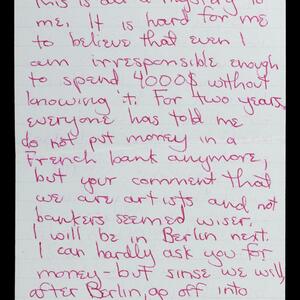 This is all a mystery to
me. It is hard for me
to believe that even I
am irresponsible enough
to spend 4000$ without
knowing it. For two years
everyone has told me
do not put money in a
French bank anymore,
but your comment that
we are artists and not
bankers seemed wiser.
I will be in Berlin next.
I can hardly ask you for
money - but sinse we will,
after Berlin, go off into